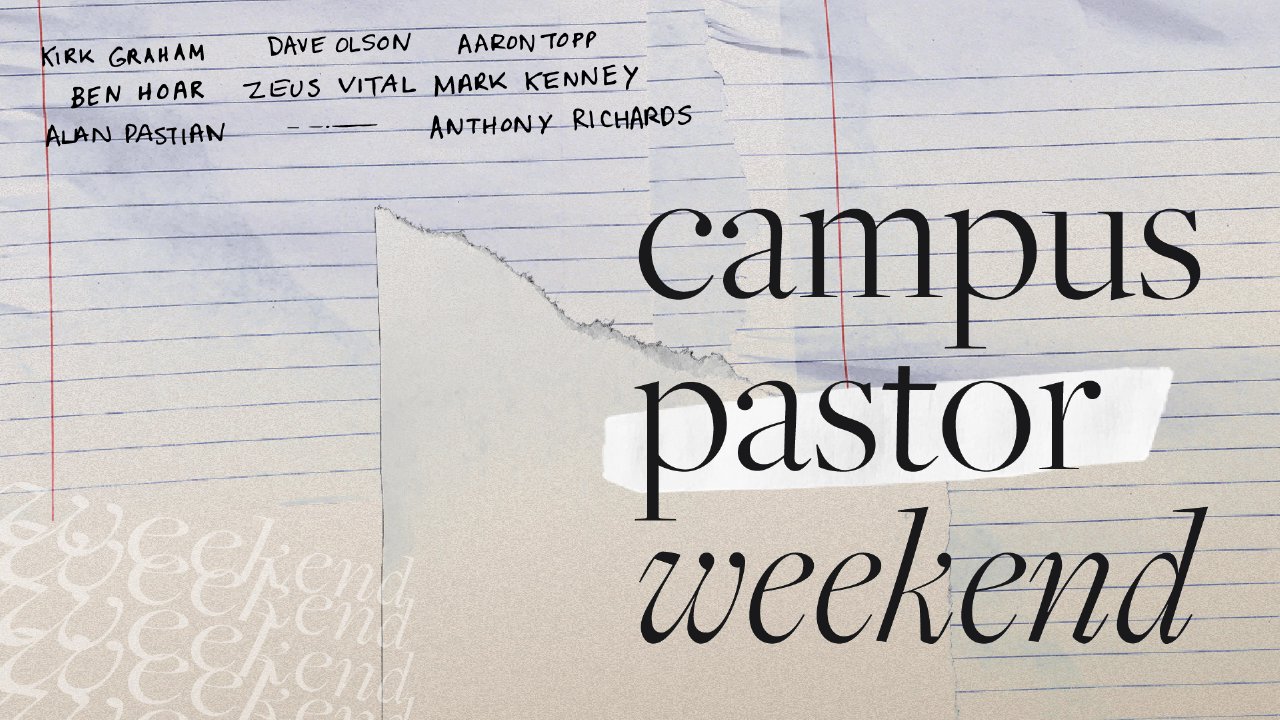 KIRK GRAHAM DAVE OLSON AARON TOPP
BEN HOAR ZEUS VITAL MARK KENNEY
ALAN PASTIAN ANTHONY RICHARDS
campus
pastor
weekend
weekend
weekend
weekend
weekend
weekend